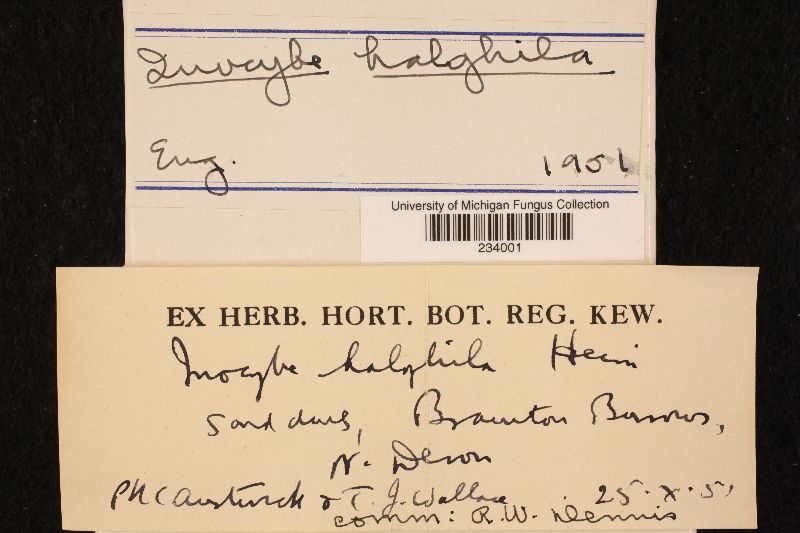 Inocybe halophila
Eng. 1951
University of Michigan Fungus Collection
234001
EX HERB. HORT. BOT. REG. KEW.
Inocybe halophila Heim
sand dunes, Braunton Burrows,
N. Devon
PKC Austwick & T. J. Wallace 25.X.51
comm: R.W. Dennis